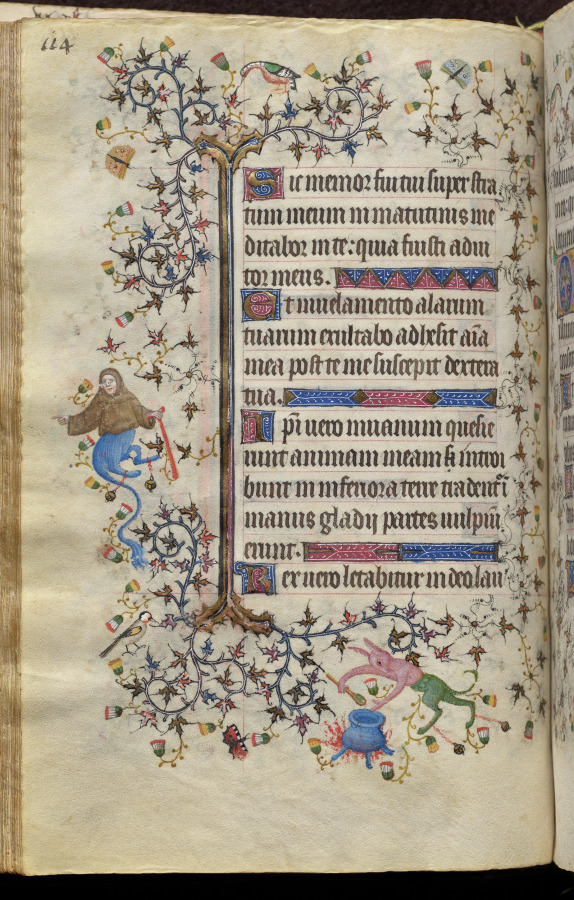 114
Sic memor fui tui super stra
tum meum in matutinis me
ditabor in te: quia fuisti adiu
tor meus.
Et in velamento alarum
tuarum exultabo adhesit aīa
mea post te me suscepit dextera
tua.
Ipī vero in vanum quesie
runt animam meam ⁊ introi
bunt in inferiora terre tradent᷑ ī
manus gladij partes vulpiū
erunt.
Rex vero letabitur in deo lau